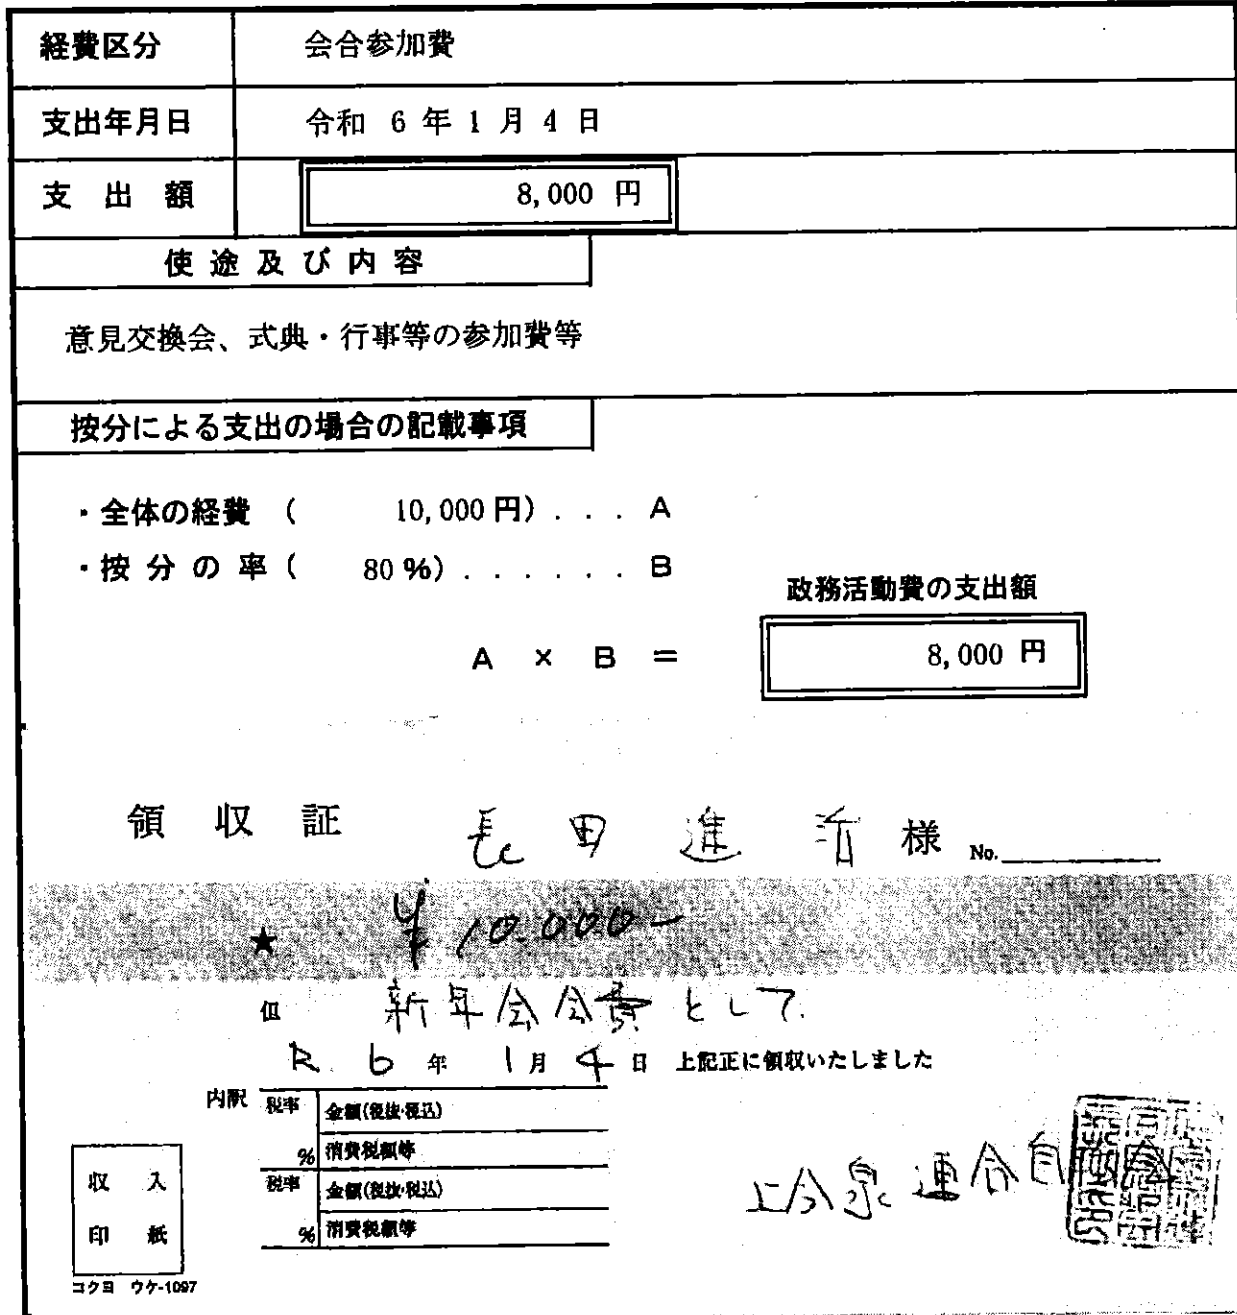 経費区分 会合参加費
支出年月日 令和 6 年 1 月 4 日
支出額 8,000 円
使途及び内容
意見交換会、式典・行事等の参加費等
按分による支出の場合の記載事項
・全体の経費 ( 10,000 円) . . . A
・按分の率 ( 80 %) . . . . . . . B
政務活動費の支出額
A × B = 8,000 円
領収証 長田進治 様 No.
★ ¥10,000-
但 新年会会費として
R.6年 1月 4日 上記正に領収いたしました
内訳 税率 金額(税抜・税込)
% 消費税額等
税率 金額(税抜・税込)
% 消費税額等
収入
印紙
上今泉連合自治会
コクヨ ウケ-1097